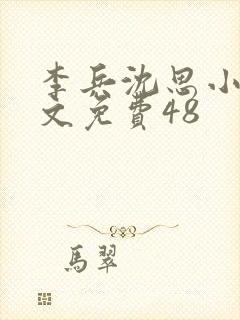 李兵沈思小
文免費48
馬翠